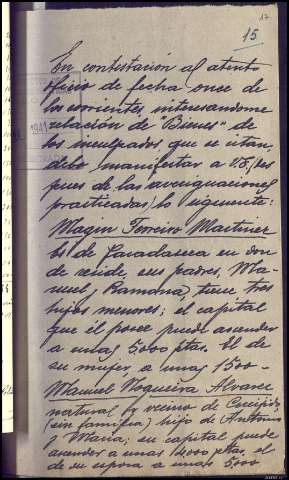 17
15
En contestación al atento
oficio de fecha once de
los corrientes interesandome
relación de "Bienes" de
los inculpados, que se citan,
debo manifestar a V.S. (des
pues de las averiguaciones
practicadas) lo siguiente:
Magin Ferreiro Martinez
es de Paradaseca en don
de reside, sus padres, Ma-
nuel y Ramona, tiene tres
hijos menores; el capital
que él posee puede ascender
a unas 5000 ptas. El de
su mujer, a unas 1500-
Manuel Nogueira Alvarez
natural y vecino de
(sin familia) hijo de Antonio
y Maria; su capital puede
ascender a unas 14000 ptas, el
de su esposa a unas 5,000